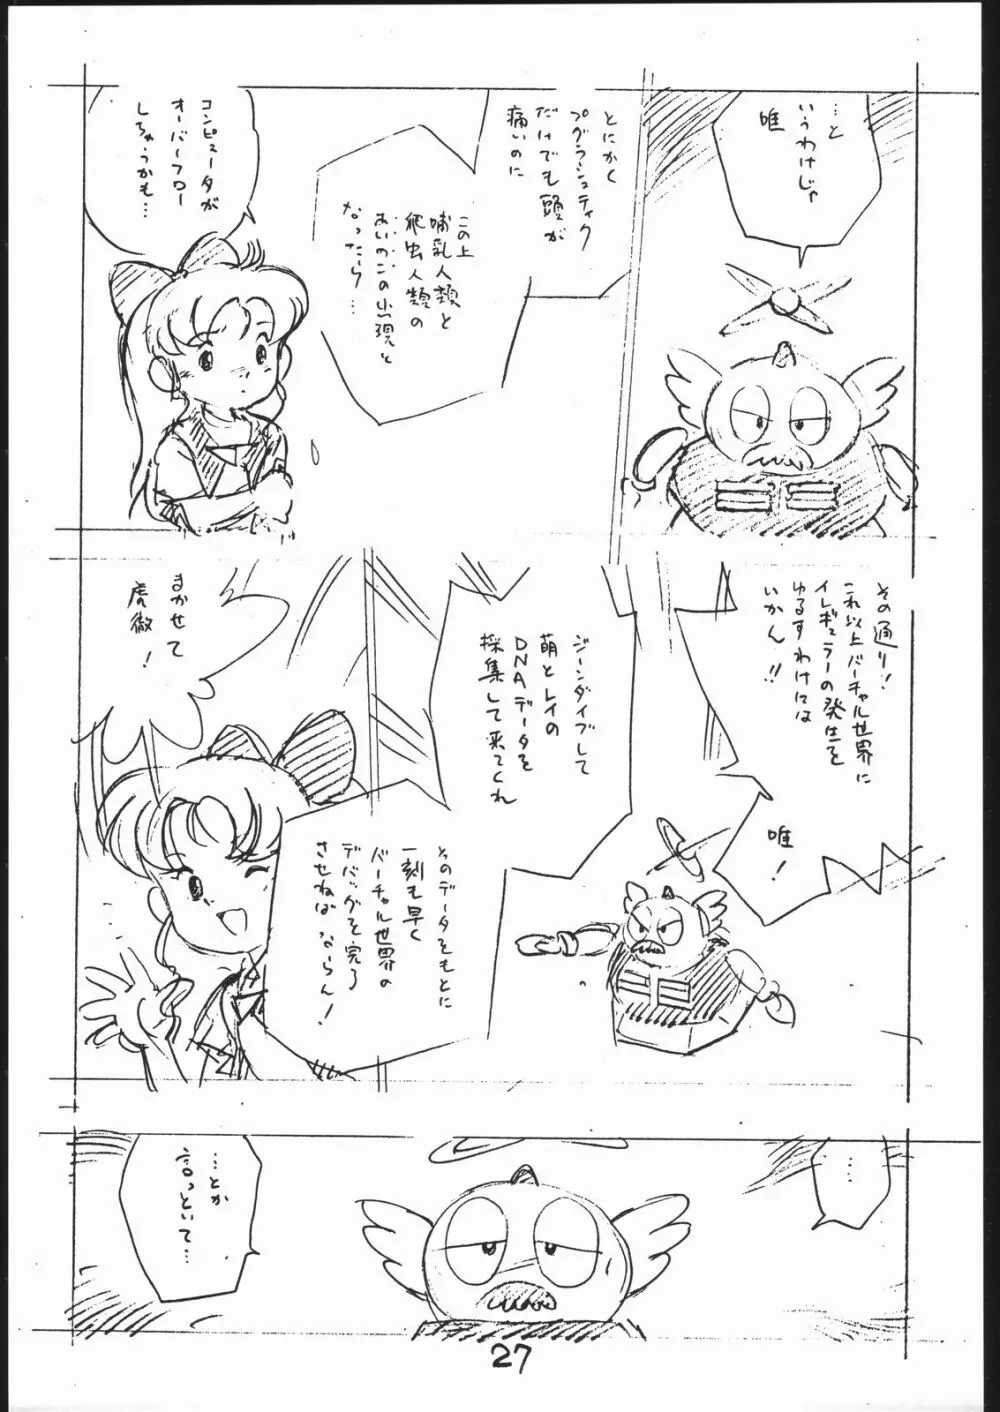 …と
いうわけじゃ
唯
とにかく
プグラシュティク
だけでも頭が
痛いのに
この上
哺乳人類と
爬虫人類の
あいのこの出現と
なったら…
コンピュータが
オーバーフロー
しちゃうかも…
その通り!
これ以上バーチャル世界に
イレギュラーの発生を
ゆるすわけには
いかん!!
唯!
ジーンダイブして
萌とレイの
DNAデータを
採集して来てくれ
そのデータをもとに
一刻も早く
バーチャル世界の
デバッグを完了
させねばならん!
まかせて
虎徹!
……
…とか
言っといて…
27